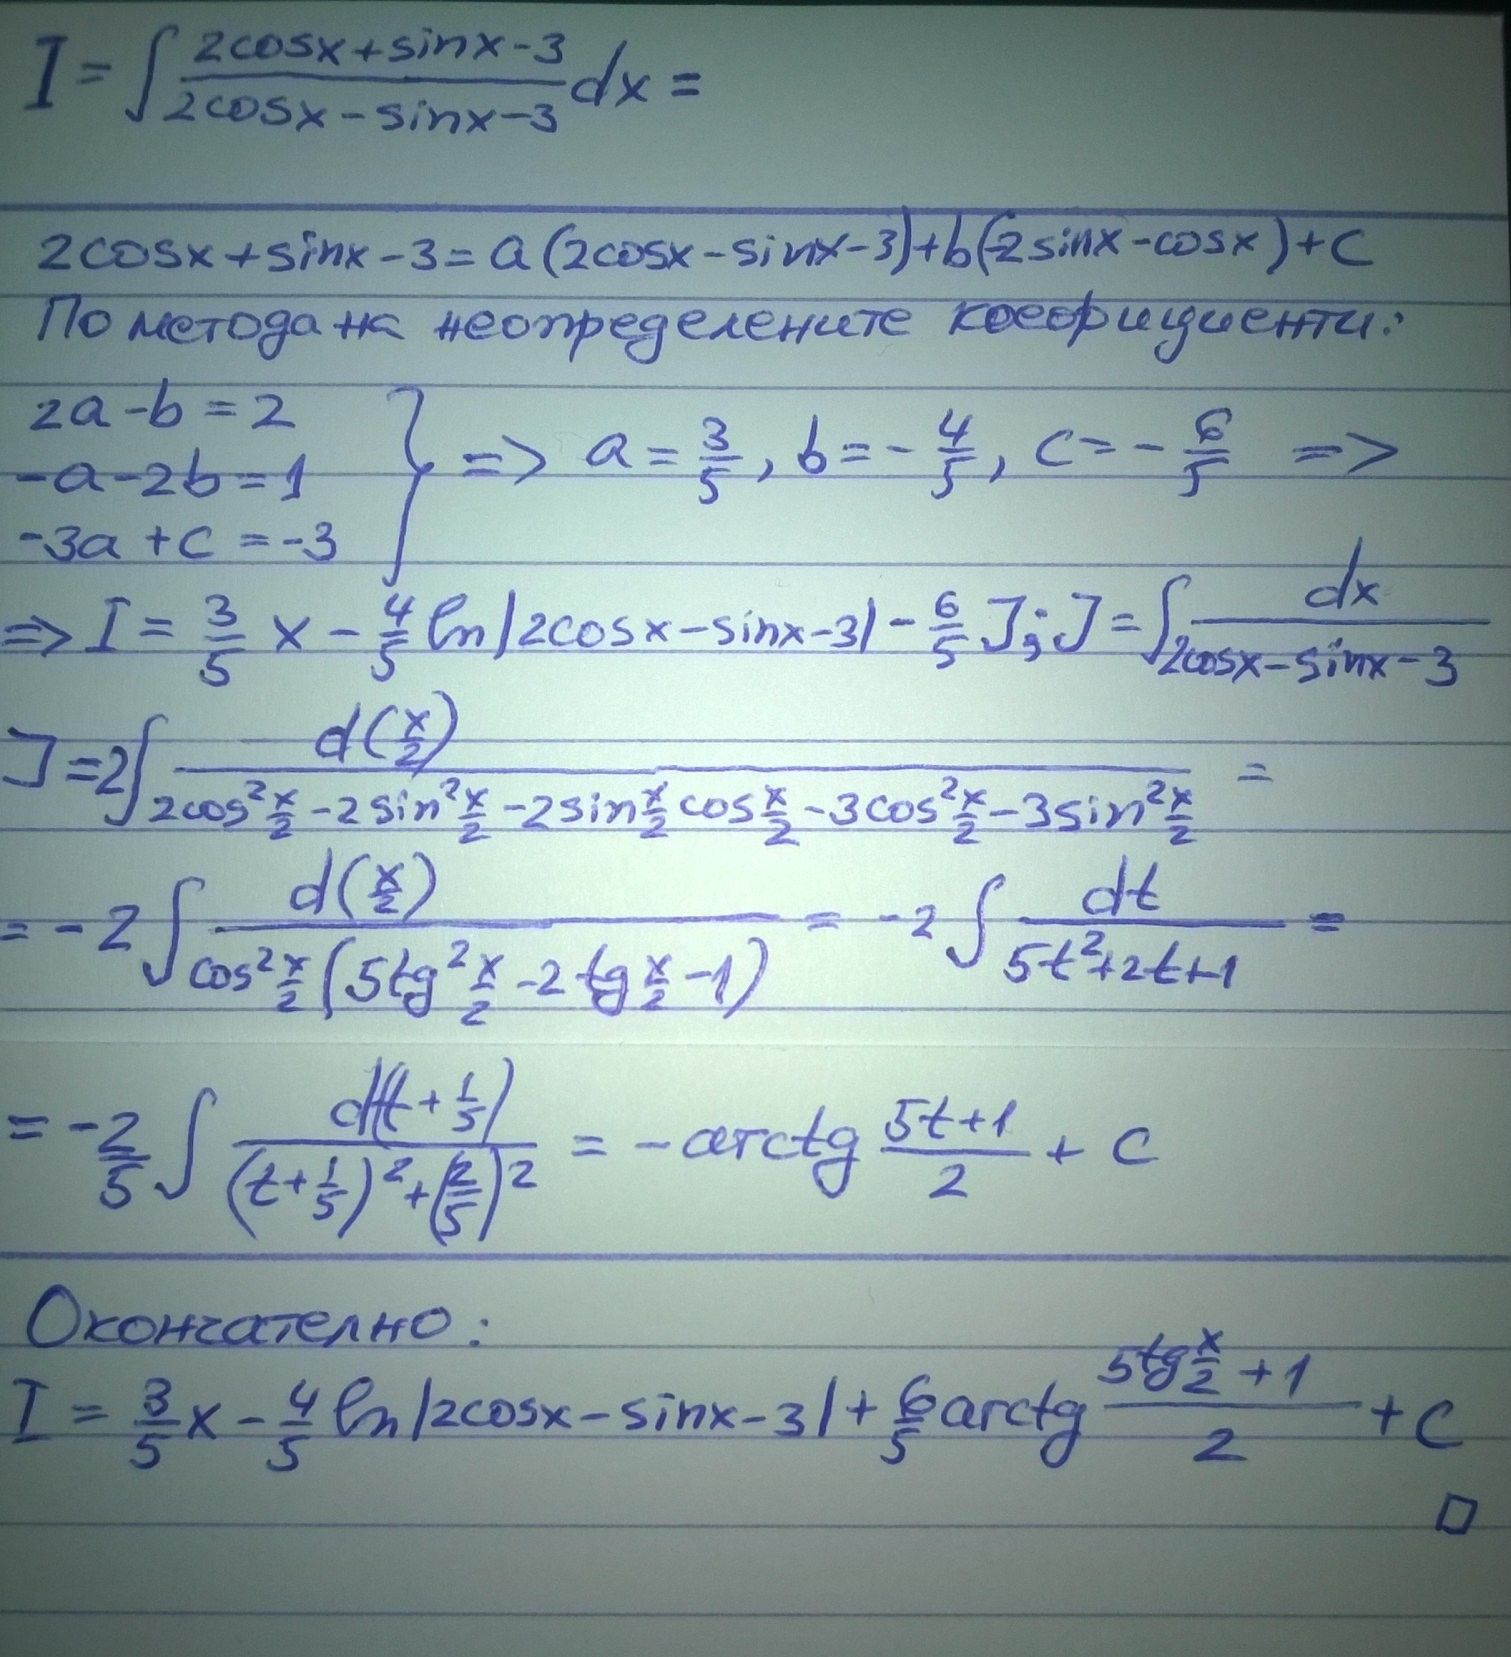 I = ∫ (2cosx+sinx-3)/(2cosx-sinx-3) dx =
2cosx+sinx-3 = a(2cosx-sinx-3)+b(-2sinx-cosx)+c
По метода на неопределените коефициенти:
2a-b=2
-a-2b=1
-3a+c=-3
} => a = 3/5, b = -4/5, c = -6/5 =>
=> I = 3/5 x - 4/5 ln|2cosx-sinx-3| - 6/5 J; J = ∫ dx/(2cosx-sinx-3)
J = 2∫ d(x/2)/(2cos²x/2 - 2sin²x/2 - 2sin x/2 cos x/2 - 3cos²x/2 - 3sin²x/2) =
= -2 ∫ d(x/2)/(cos²x/2 (5tg²x/2 - 2tg x/2 - 1)) = -2 ∫ dt/(5t²+2t+1) =
= -2/5 ∫ d(t+1/5)/((t+1/5)²+(2/5)²) = -arctg (5t+1)/2 + c
Окончателно:
I = 3/5 x - 4/5 ln|2cosx-sinx-3| + 6/5 arctg (5tg x/2 + 1)/2 + C
□